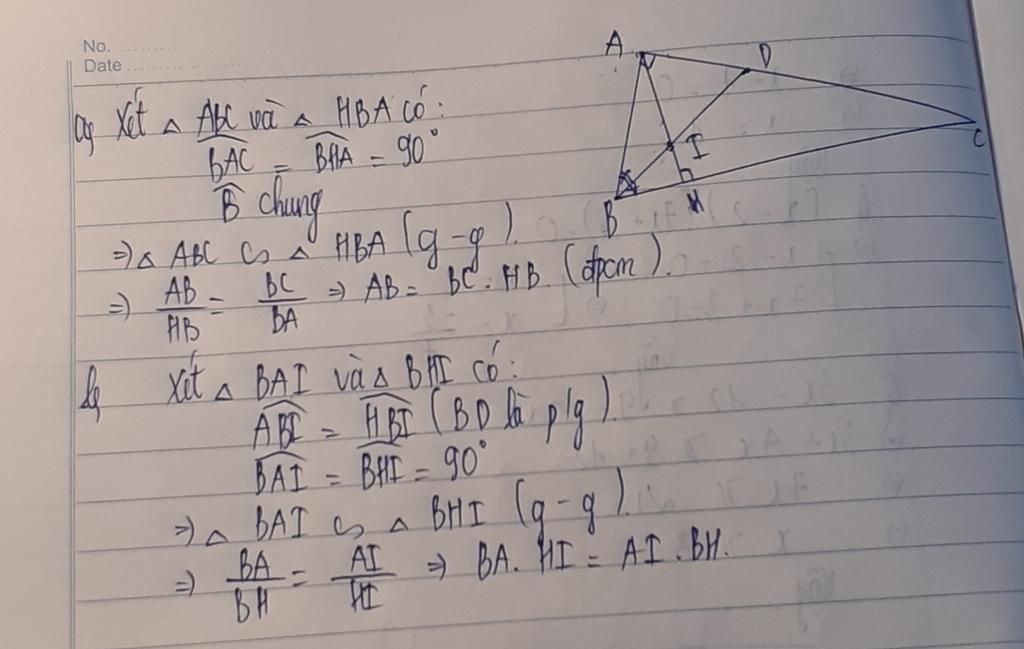 No. ........
Date ................
a, Xét △ ABC và △ HBA có:
BAC = BHA = 90°
B chung
⇒ △ ABC ∽ △ HBA (g-g).
⇒ AB/HB = BC/BA ⇒ AB = BC . HB. (đpcm).
b, Xét △ BAI và △ BHI có:
ABI = HBI (BD là p/g).
BAI = BHI = 90°
⇒ △ BAI ∽ △ BHI (g-g).
⇒ BA/BH = AI/HI ⇒ BA. HI = AI . BH.
A
D
I
C
B
H